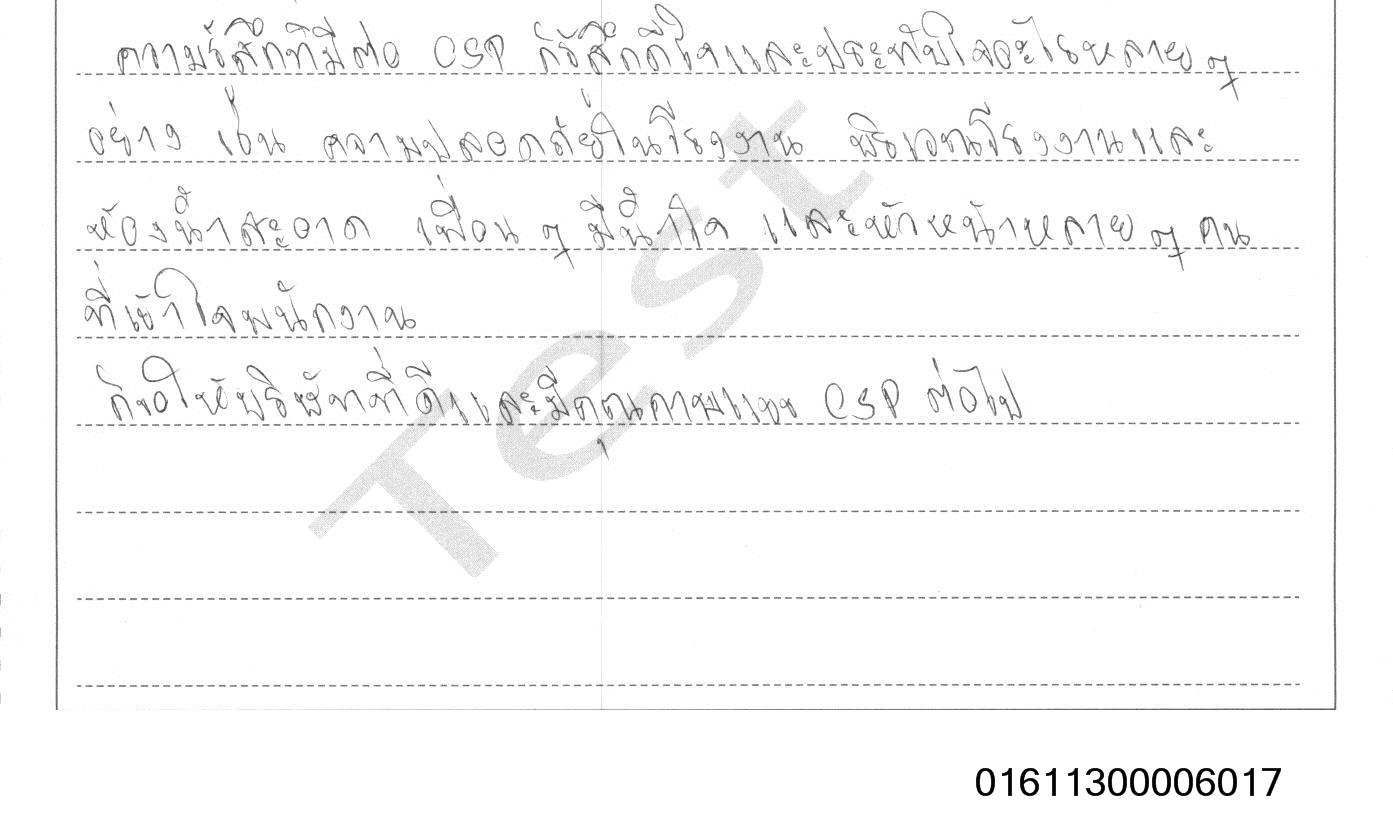 ความรู้สึกที่มีต่อ CSP ก็รู้สึกดีใจและประทับใจอะไรหลาย ๆ
อย่าง เช่น ความปลอดภัยในโรงงาน บริเวณโรงงานและ
ห้องน้ำสะอาด เพื่อน ๆ มีน้ำใจ และหัวหน้าหลาย ๆ คน
ที่เข้าใจพนักงาน
ก็ขอให้บริษัทที่ดีและมีคุณภาพแบบ CSP ต่อไป
Test
01611300006017